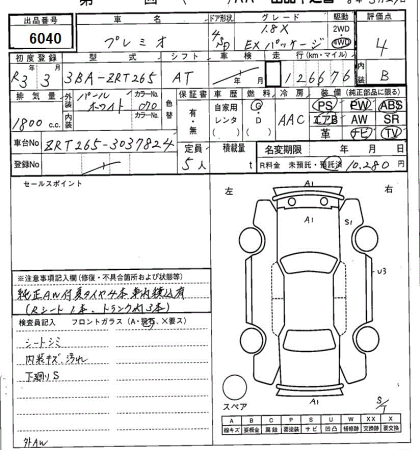 出品番号 車名 ドア形状 グレード 駆動 評価点
6040 プレミオ 4 D 1.8X EXパッケージ 2WD 4WD 4
初度登録 型式 シフト 車検 走行(km・マイル) 内装
R3年3月 3BA-ZRT265 AT 年 月 126676 B
排気量 外装 カラーNo. 色替 保証書 車歴 燃料 冷房 装備(純正部品に限る)
1800c.c. パールホワイト 070 有・無 自家用 レンタ G D AAC PS PW ABS
内装 カラーNo. エアB AW SR
革 ナビ TV
車台No ZRT265-3037824 定員 積載量 名変期限 年 月 日
登録No 5人 t R料金 未預託・預託済 10,280円
セールスポイント
左 右
A1
S1
U3
※注意事項記入欄(修復・不具合箇所および状態等)
純正AW付夏タイヤ4本車内積込有
(Rシート1本、トランク内3本)
検査員記入 フロントガラス(A・飛石、X要ス)
シートシミ
内装キズ、汚れ
下廻りS
外AW
A1
A1
スペア
S/T
A B C P S U W X XX